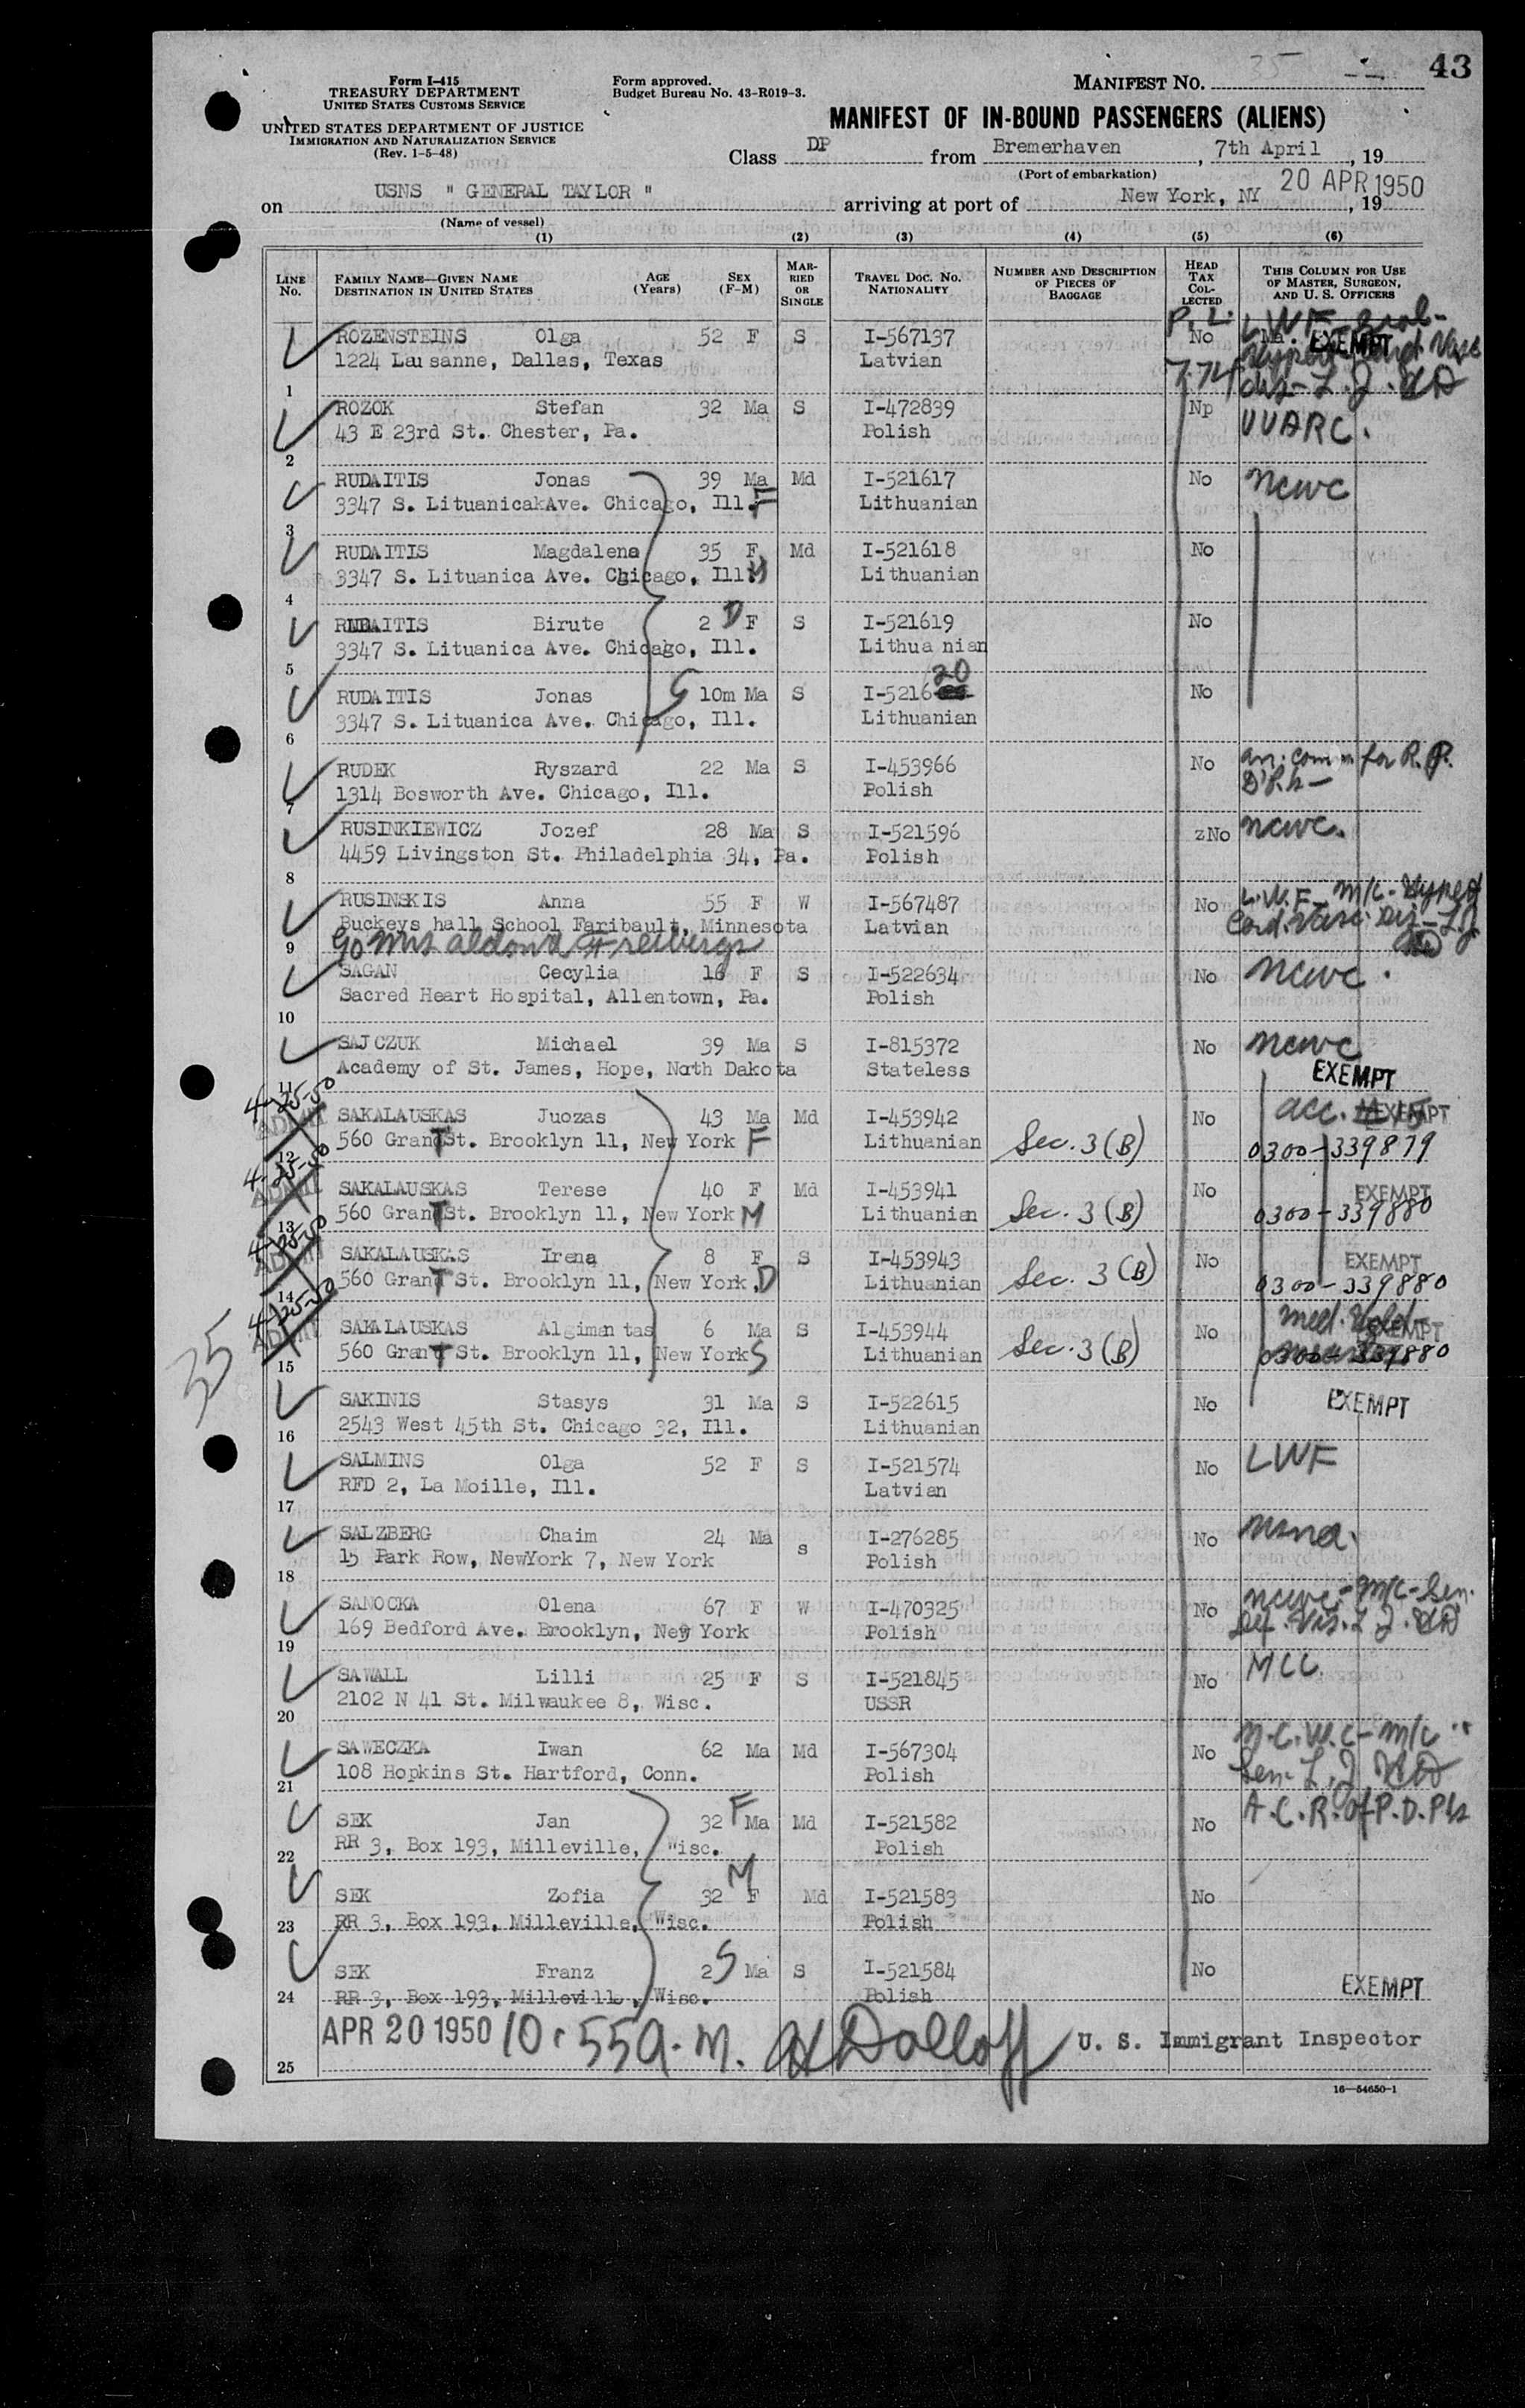 43
Form I-415
TREASURY DEPARTMENT
UNITED STATES CUSTOMS SERVICE
UNITED STATES DEPARTMENT OF JUSTICE
IMMIGRATION AND NATURALIZATION SERVICE
(Rev. 1-5-48)
Form approved.
Budget Bureau No. 43-R019-3.
MANIFEST NO. 35
MANIFEST OF IN-BOUND PASSENGERS (ALIENS)
Class DP from Bremerhaven, 7th April, 19
(Port of embarkation)
on USNS " GENERAL TAYLOR " arriving at port of New York, NY 20 APR 1950, 19
(Name of vessel)
(1) (2) (3) (4) (5) (6)
LINE No. FAMILY NAME—GIVEN NAME DESTINATION IN UNITED STATES AGE (Years) SEX (F-M) MARRIED OR SINGLE TRAVEL DOC. NO. NATIONALITY NUMBER AND DESCRIPTION OF PIECES OF BAGGAGE HEAD TAX COLLECTED THIS COLUMN FOR USE OF MASTER, SURGEON, AND U. S. OFFICERS
P. L. 774
ROZENSTEINS Olga 52 F S I-567137 No LWF EXEMPT
1224 Lausanne, Dallas, Texas Latvian
1
ROZOK Stefan 32 Ma S I-472839 Np UUARC.
43 E 23rd St. Chester, Pa. Polish
2
RUDAITIS Jonas 39 Ma Md I-521617 No NCWC
3347 S. LituanicakAve. Chicago, Ill. F Lithuanian
3
RUDAITIS Magdalena 35 F Md I-521618 No
3347 S. Lituanica Ave. Chicago, Ill. M Lithuanian
4
RUDAITIS Birute 2 D F S I-521619 No
3347 S. Lituanica Ave. Chicago, Ill. Lithua nian
5
RUDAITIS Jonas S 10m Ma S I-521620 No
3347 S. Lituanica Ave. Chicago, Ill. Lithuanian
6
RUDEK Ryszard 22 Ma S I-453966 No am. comm for R. P. D.P.s
1314 Bosworth Ave. Chicago, Ill. Polish
7
RUSINKIEWICZ Jozef 28 Ma S I-521596 zNo NCWC.
4459 Livingston St. Philadelphia 34, Pa. Polish
8
RUSINSKIS Anna 55 F W I-567487 No L.W.F. M/C
Buckeys hall School Faribault, Minnesota Latvian
9 Mrs Aldona Freibergs
SAGAN Cecylia 16 F S I-522634 No NCWC.
Sacred Heart Hospital, Allentown, Pa. Polish
10
SAJCZUK Michael 39 Ma S I-815372 No NCWC
Academy of St. James, Hope, North Dakota Stateless EXEMPT
11
4-25-50 ADMIT
SAKALAUSKAS Juozas 43 Ma Md I-453942 No acc. EXEMPT
560 GranTSt. Brooklyn 11, New York F Lithuanian Sec. 3 (B) 0300-339879
12
4-25-50 ADMIT
SAKALAUSKAS Terese 40 F Md I-453941 No EXEMPT
560 GranTSt. Brooklyn 11, New York M Lithuanian Sec. 3 (B) 0300-339880
13
4-25-50 ADMIT
SAKALAUSKAS Irena 8 F S I-453943 No EXEMPT
560 GranT St. Brooklyn 11, New York, D Lithuanian Sec. 3 (B) 0300-339880
14
4-25-50 ADMIT
SAKALAUSKAS Algimantas 6 Ma S I-453944 No Med. Hold EXEMPT
560 GranT St. Brooklyn 11, New York S Lithuanian Sec. 3 (B) 0300-339880
15
35
SAKINIS Stasys 31 Ma S I-522615 No EXEMPT
2543 West 45th St. Chicago 32, Ill. Lithuanian
16
SALMINS Olga 52 F S I-521574 No LWF
RFD 2, La Moille, Ill. Latvian
17
SALZBERG Chaim 24 Ma s I-276285 No
15 Park Row, NewYork 7, New York Polish
18
SANOCKA Olena 67 F W I-470325 No NCWC - M/C - Sen.
169 Bedford Ave. Brooklyn, New York Polish
19
SAWALL Lilli 25 F S I-521845 No MCC
2102 N 41 St. Milwaukee 8, Wisc. USSR
20
SAWECZKA Iwan 62 Ma Md I-567304 No N.C.W.C - M/C
108 Hopkins St. Hartford, Conn. Polish Sen.
21
SEK Jan 32 F Ma Md I-521582 No A.C.R. of P.D.Pls
RR 3, Box 193, Milleville, Wisc. Polish
22
SEK Zofia 32 M F Md I-521583 No
RR 3, Box 193, Milleville, Wisc. Polish
23
SEK Franz 2 S Ma S I-521584 No
RR 3, Box 193, Milleville, Wisc. Polish EXEMPT
24
APR 20 1950 10:55 A.M. H Dolloff U. S. Immigrant Inspector
25
16—54650-1